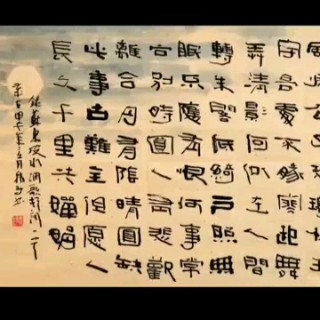 風歸去又恐瓊樓玉
宇高處不勝寒起舞
弄清影何似在人間
轉朱閣低綺戶照無
眠不應有恨何事常
向別時圓人有悲歡
離合月有陰晴圓缺
此事古難全但願人
長久千里共嬋娟
蘇東坡水調歌頭詞一
甲午年月